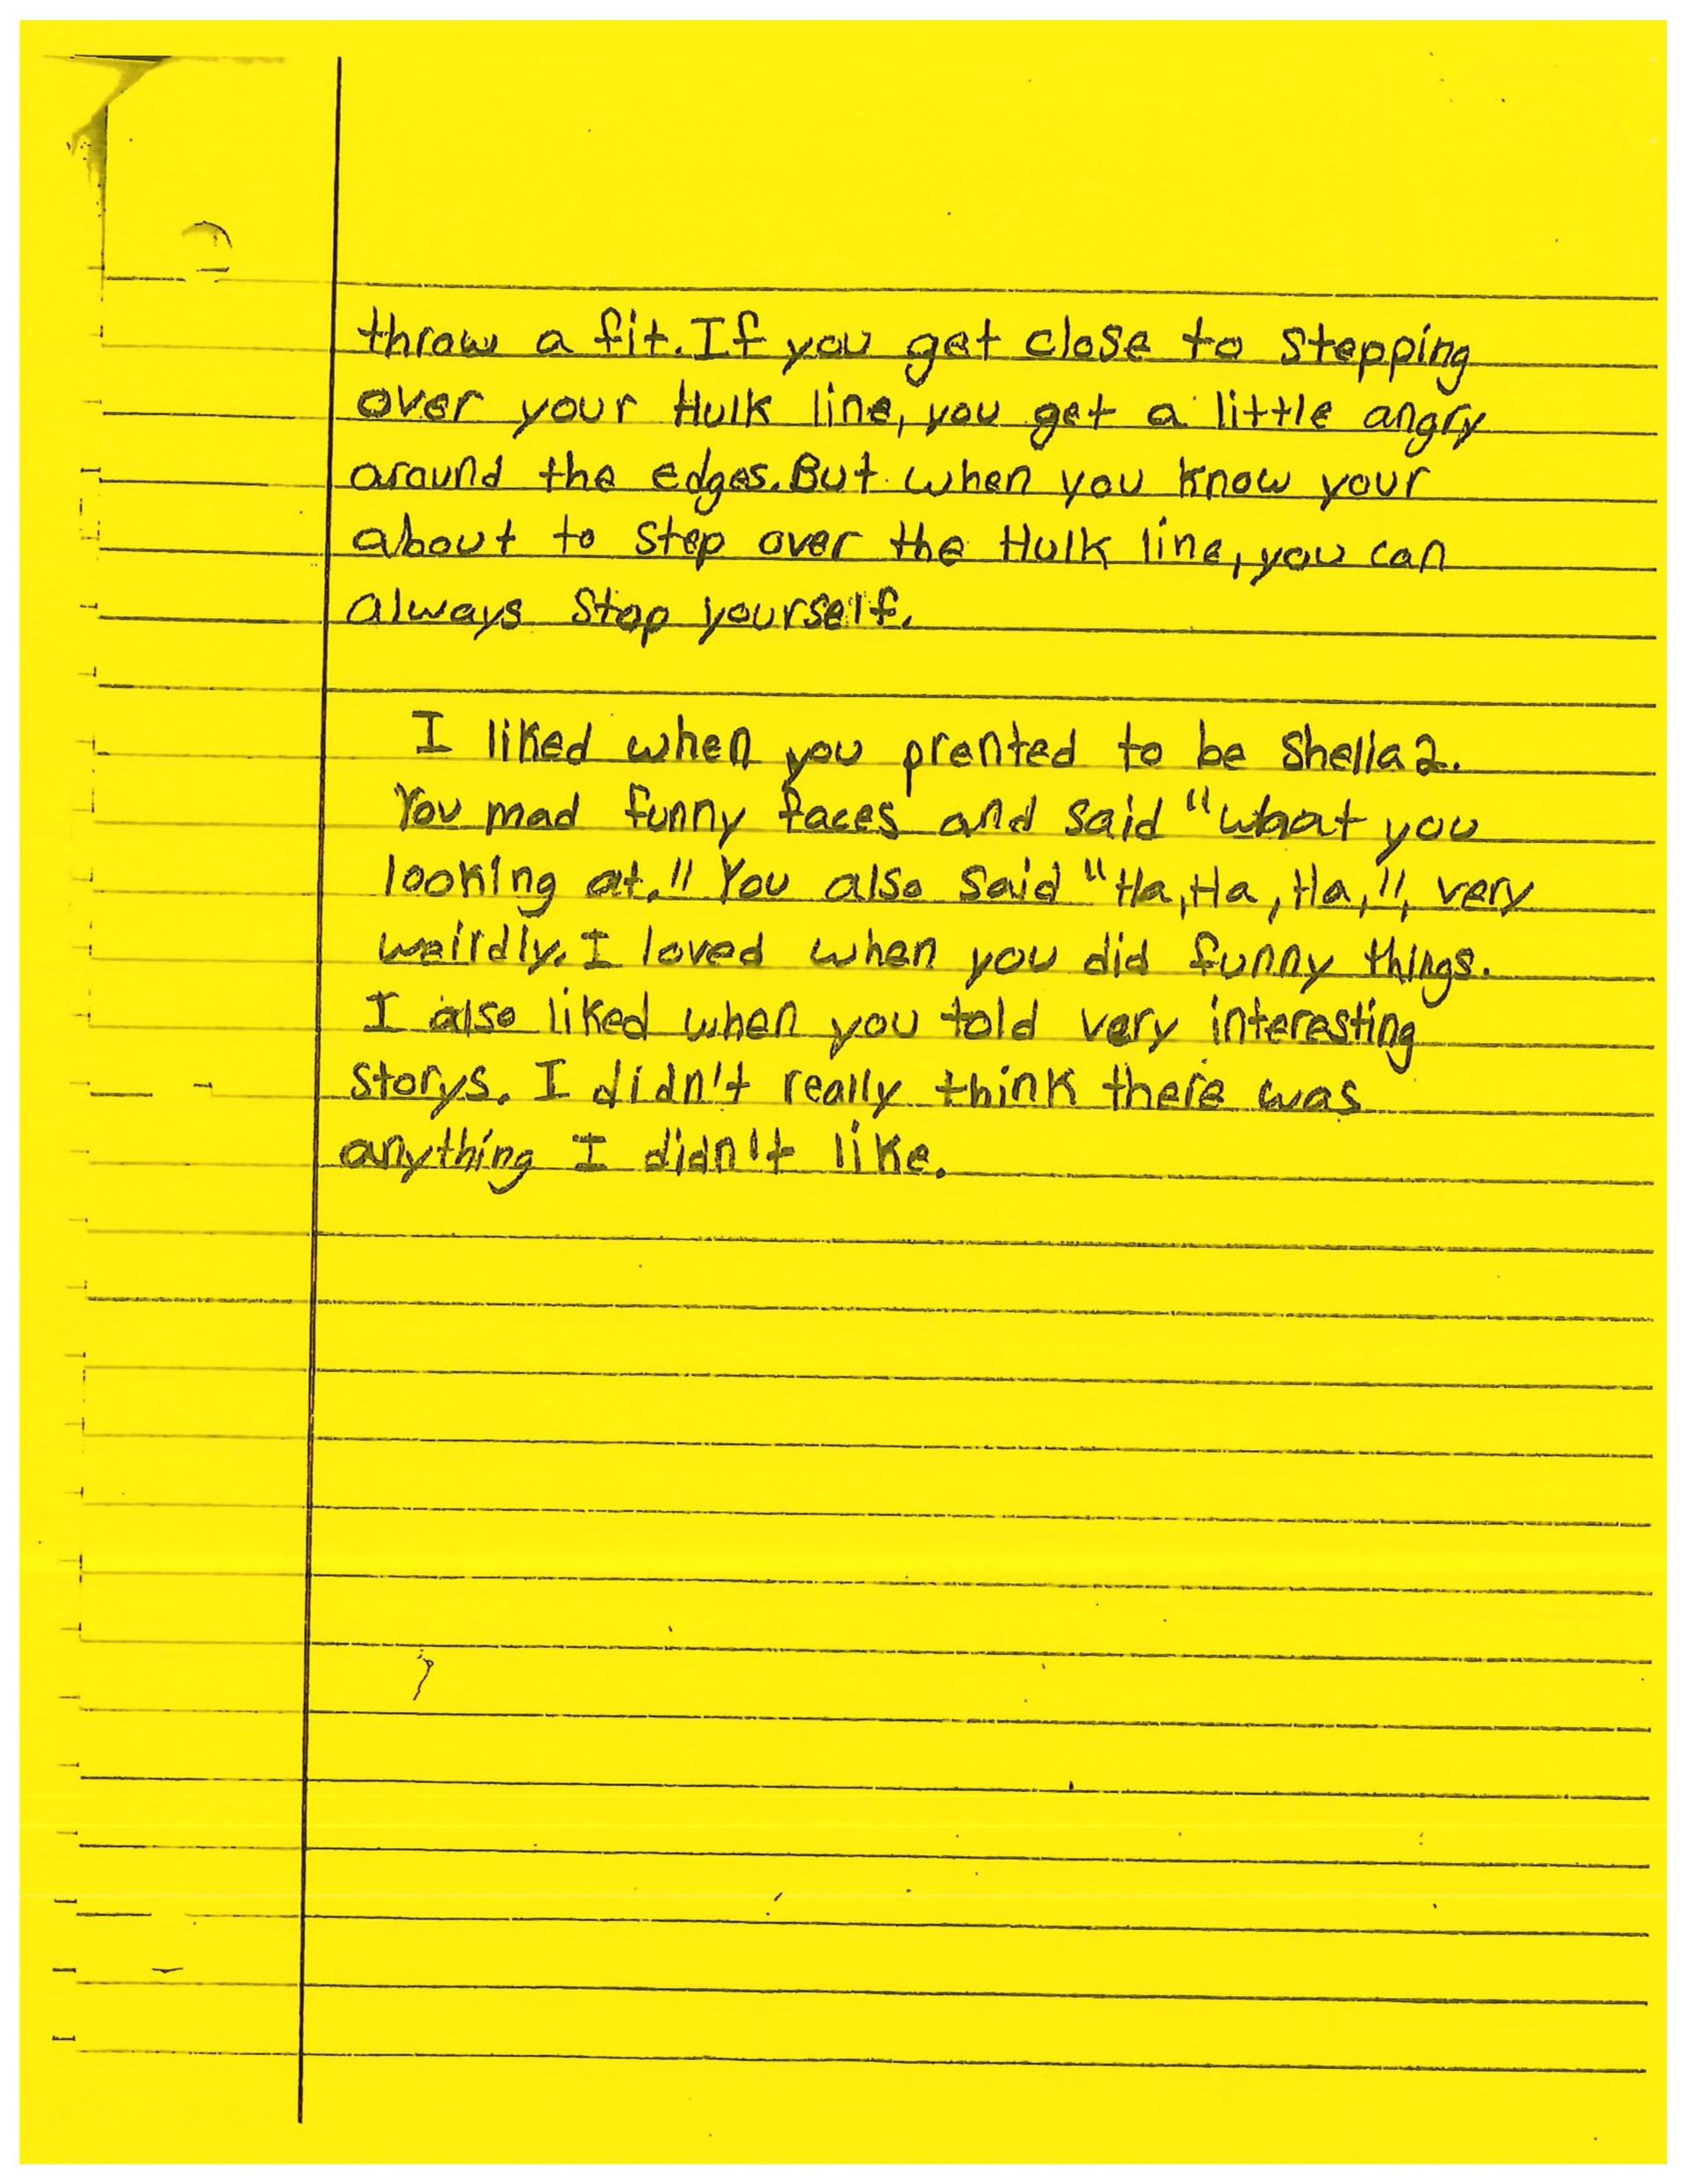 throw a fit. If you get close to stepping
over your Hulk line, you get a little angry
around the edges. But when you know your
about to step over the Hulk line, you can
always stop yourself.
I liked when you prented to be Shella 2.
You mad funny faces and said "what you
looking at." You also said "Ha, Ha, Ha,", very
weirdly. I loved when you did funny things.
I also liked when you told very interesting
storys. I didn't really think there was
anything I didn't like.